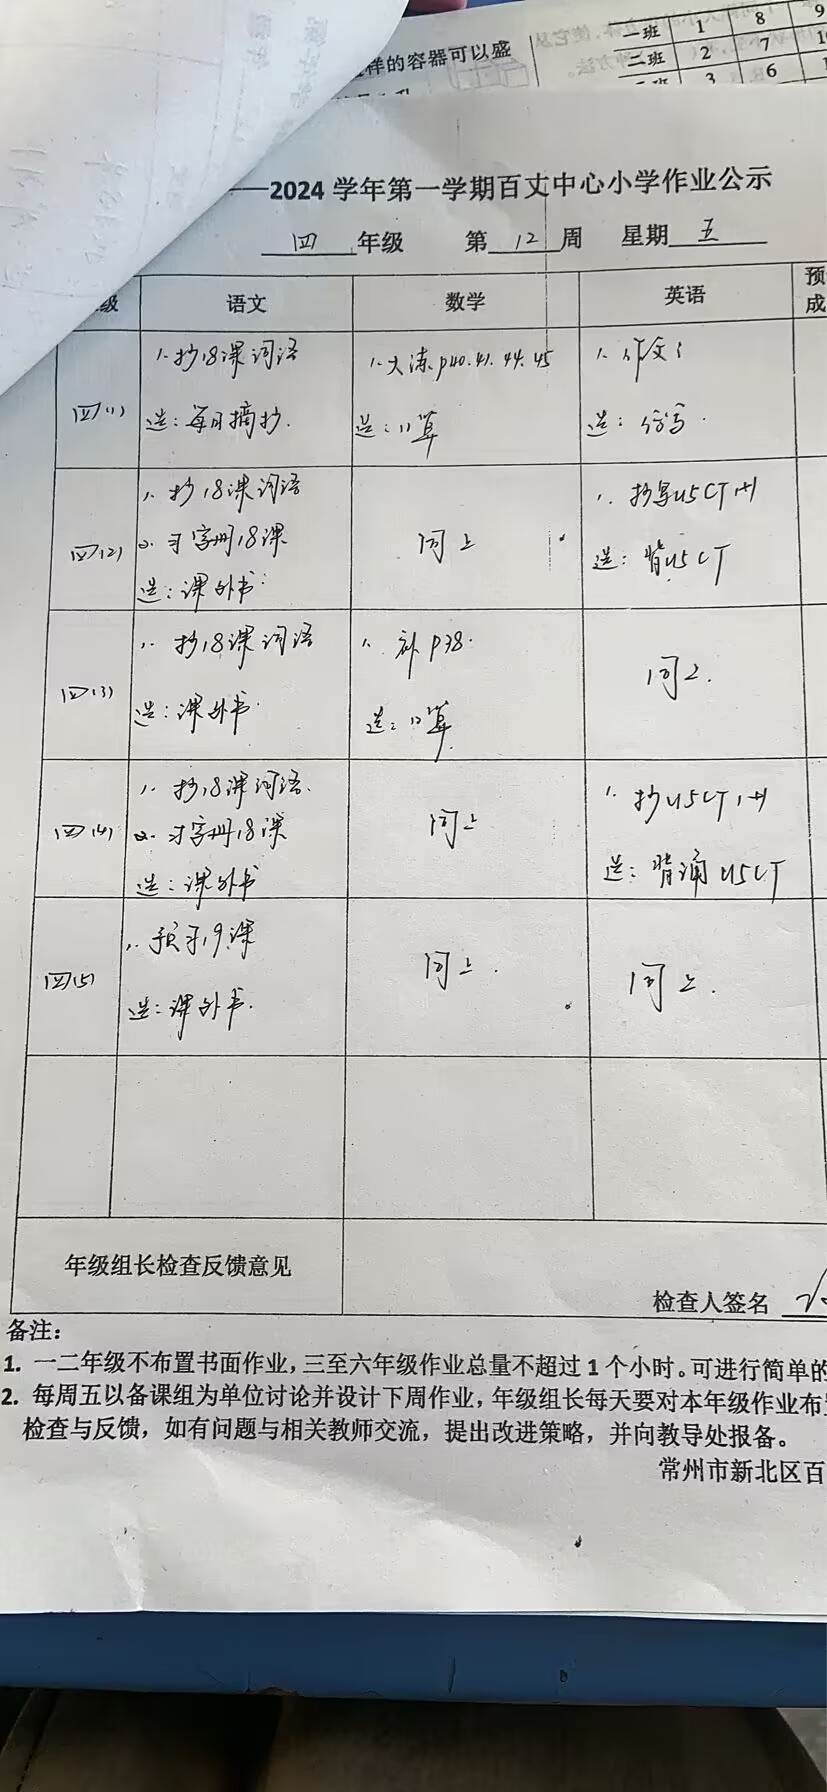 样的容器可以盛
一班 1 8 9
二班 2 7
3 6
2024 学年第一学期百丈中心小学作业公示
四 年级 第 12 周 星期 五
级 语文 数学 英语 预
成
四(1)
1. 抄18课词语
选：每日摘抄.
1. 大练p40.41.44.45
选：口算
1. 作文
选：仿写.
四(2)
1. 抄18课词语
2. 习字册18课
选：课外书
同上
1. 抄写U5CT 1+1
选：背U5CT
四(3)
1. 抄18课词语
选：课外书.
1. 补p38.
选：口算
同上.
四(4)
1. 抄18课词语.
2. 习字册18课
选：课外书
同上
1. 抄U5CT 1+1
选：背诵U5CT
四(5)
1. 预习19课
选：课外书.
同上.
同上.
年级组长检查反馈意见
检查人签名
备注：
1. 一二年级不布置书面作业，三至六年级作业总量不超过 1 个小时。可进行简单的
2. 每周五以备课组为单位讨论并设计下周作业，年级组长每天要对本年级作业布
检查与反馈，如有问题与相关教师交流，提出改进策略，并向教导处报备。
常州市新北区百